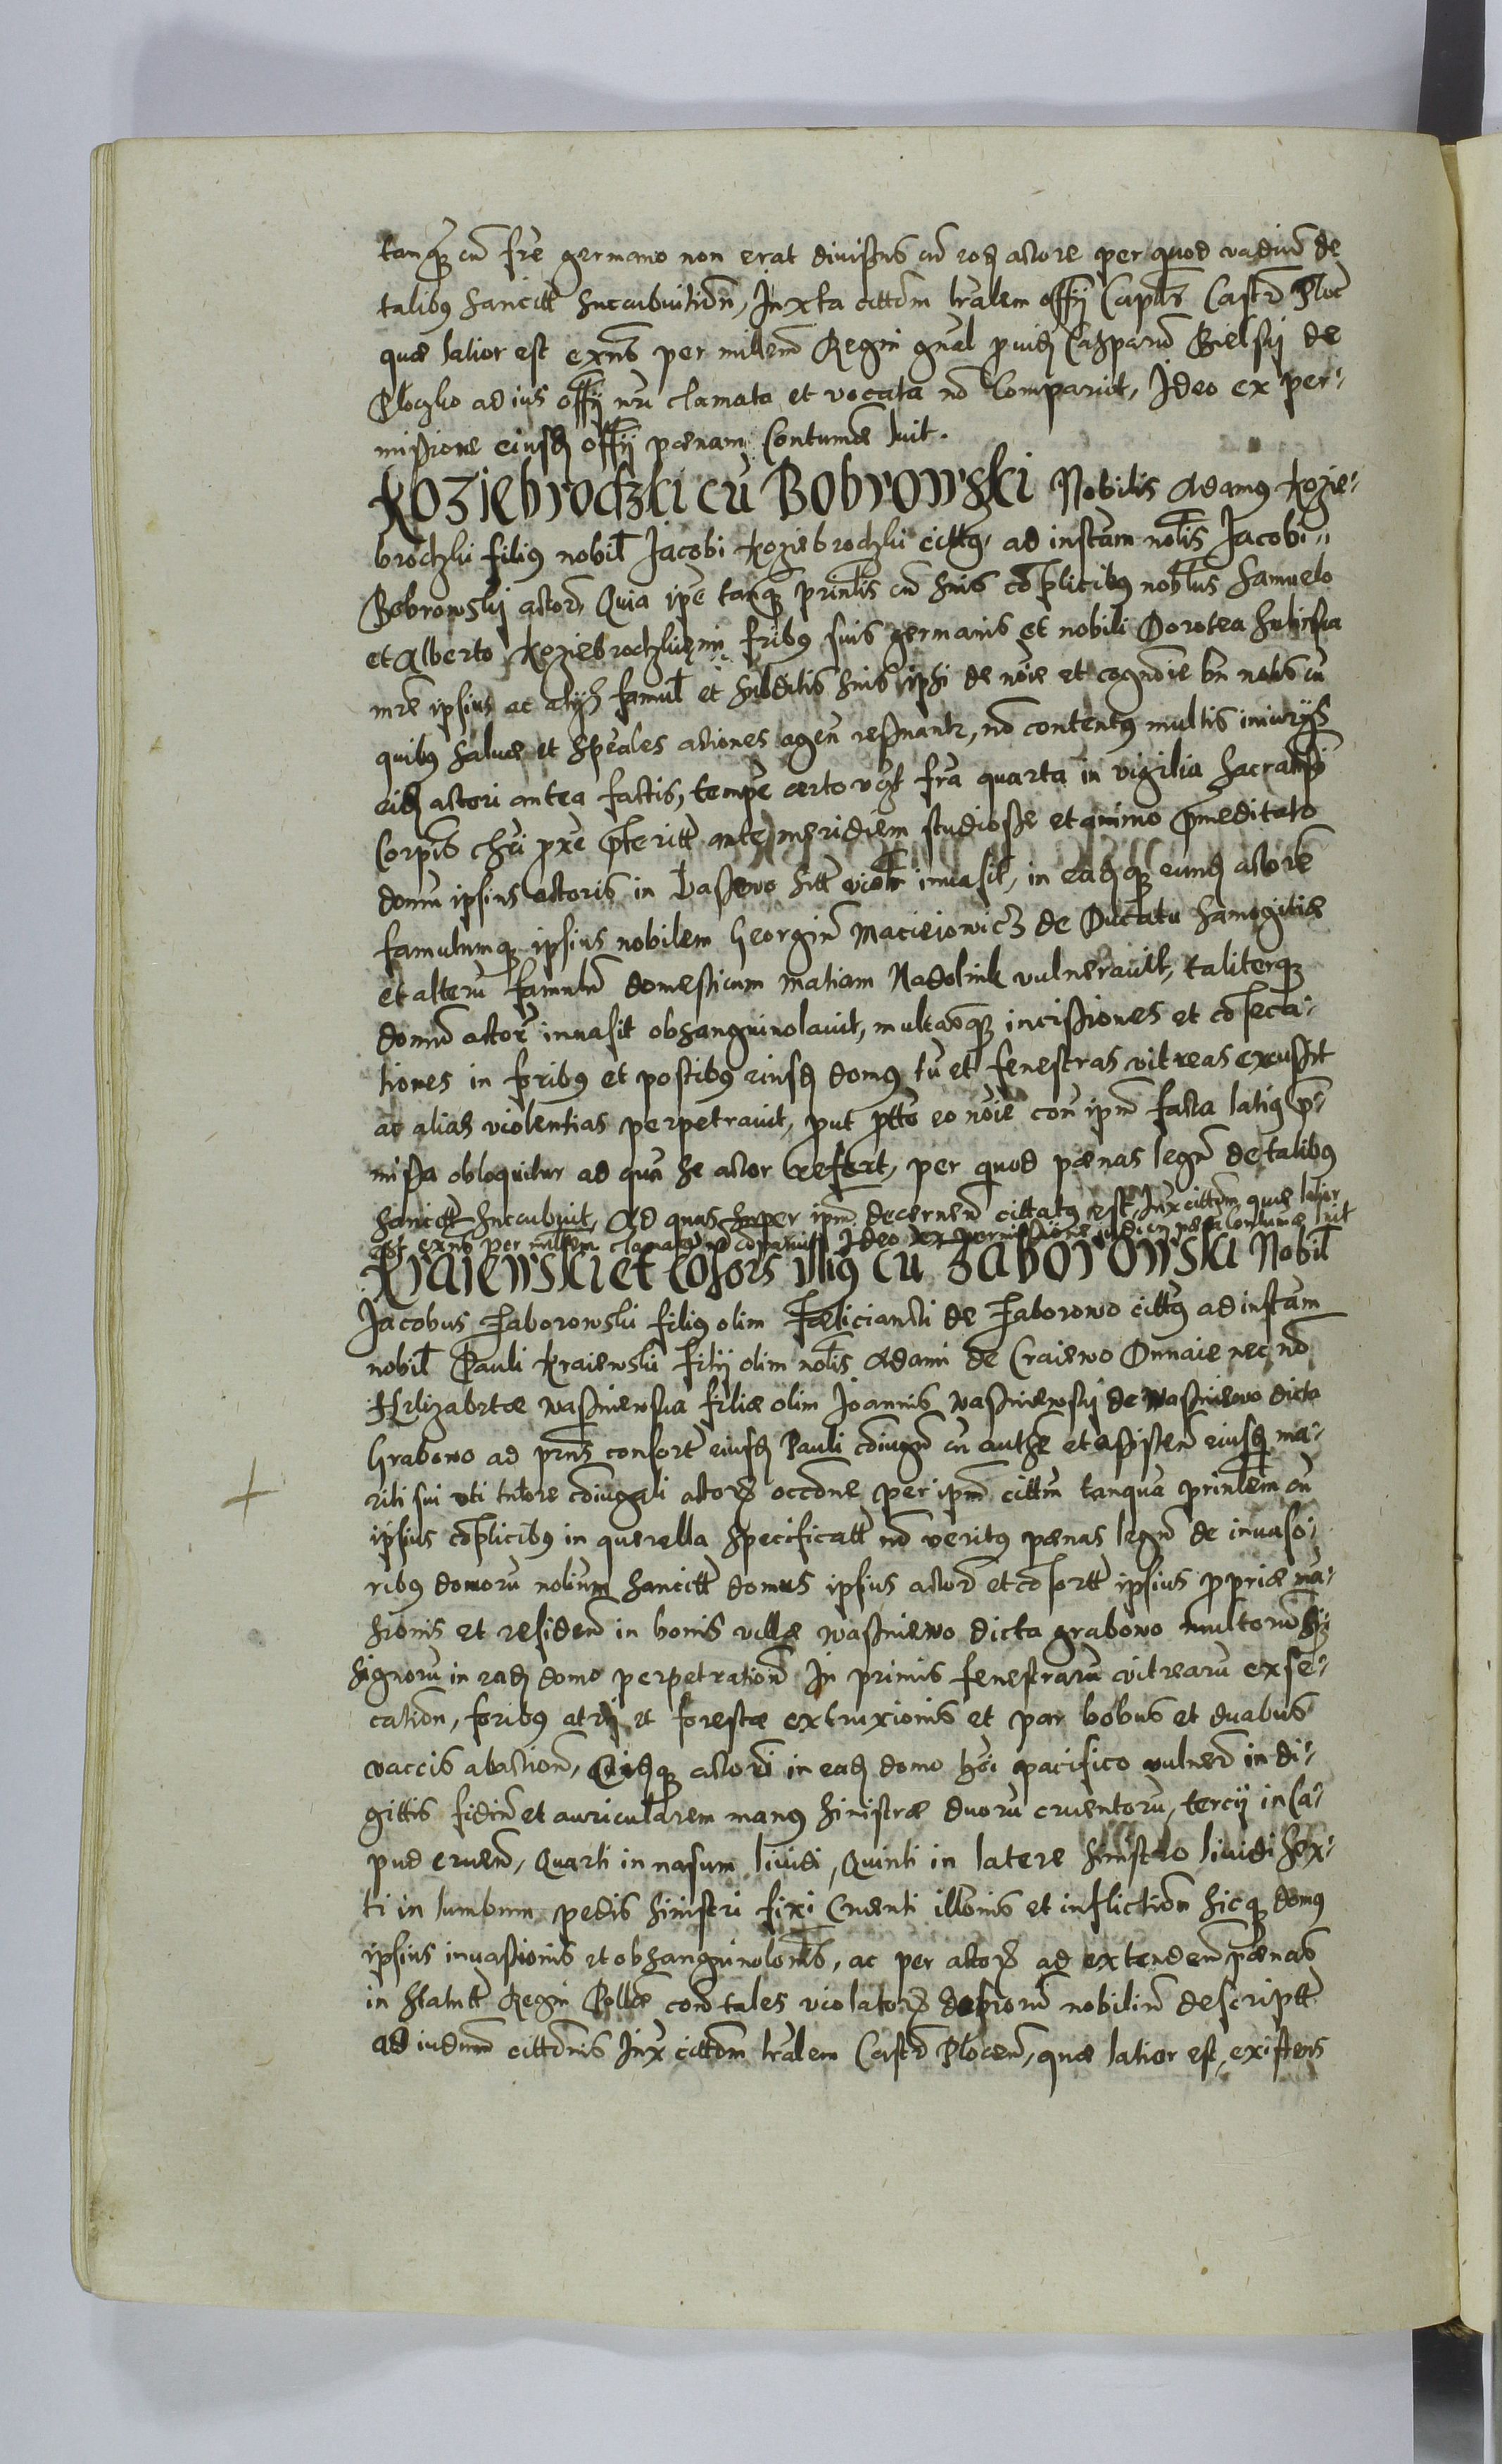 tanq cu fre germano non erat divisus cu eod actore per quod vadium de
talibus sancitt succubuition, Juxta citton tralem offy Caplis Castr Ploc
quae latior est exns per militem Regni gnal provid Casparum Bielsky de
ad ius offy nri clamata et vocata no Comparuit, Ideo ex per
missione eiusd offy poenam Contumae luit.
Koziebrodzki cu Bobrowski Nobilis Adamus Kozie
brodzki filius nobil Jacobi Koziebrodzki cittus ad instam nolis Jacobi
Bobrowsky actor, Quia ipe tanq prinlis cu suis coplicibus noblus Samuelo
et Alberto fribus suis germanis et nobili Dorotea
mre ipsius ac alys famul et subditis suis ipsi de noie et cognoie bn notis cu
quibus salvae et speales actiones agen resnantr, no contentus multis iniurys
eid actori antea factis, tempe certo vgt fra quarta in vigilia sacratmi
Corpis chri pxe pterit ante meridiem studiosse et animo pmeditato
domu ipsius actoris in Lassewo sitt violt invasit, in eadq eund actorem
famulumq ipsius nobilem Georgiu Maciejowicz de Ducatu Samogitiae
et alteru famulu domesticum Matiam Nadolink vulneravit, taliterq
domu actor invasit obsanguinolavit, multasq incissiones et cosecta
tiones in foribus et postibus eiusd domus tu et fenestras vitreas excussit
ac alias violentias perpetravit, put ptto eo noie con ipm facta latius p
missa obloquitur ad qua se actor refert, per quod poenas legu de talibus
sancitt succubuit, Ad quas super ipm decernen cittatus est Jux citton quae latior
est exns per militem clamatus no comparuit Ideo ex permissione contumae luit
Krajewski et Cosors illius cu Zaborowski Nobil
Jacobus Zaborowski filius olim Faeliciandi de Zaborowo cittus ad instam
nobil Pauli Kraiewski fily olim nolis Adami de Craiewo Onnaie nec no
Helizabetae Wassniewska filiae olim Joannis Wassniewsky de Wassniewo dicta
Grabowo ad prns consort eiusd Pauli coniugu cu authe et assisten eiusd ma
riti sui uti tutore coniugali actor occone per ipm cittm tanqua prinlem cu
ipsius coplicibus in quaerella specificatt no veritus poenas legu de invaso
ribus domoru nobium sancitt domus ipsius actor et cosortt ipsius propriae ma
sionis et residen in bonis villae Wassniewo dicta grabowo multoru
signoru in ead domo perpetration In primis fenestraru vitrearu exse
cation, foribus atry et forestae extruxionis et par bobus et duabus
vaccis abaction, Eidq actori in ead domo hoi pacifico vulner in di
gittis fidin et auricularem manus sinistrae duoru cruentoru, tercy in ca
pud cruen, Quarti in nasum lividi, Quinti in latere sinistro lividi sex
ti in lumbum pedis sinistri fixi Cruenti illonis et infliction sicq domus
ipsius invassionis et obsanguinolonis, ac per actor ad extenden poenas
in statutt Regni Pollae con tales violator domoru nobiliu descriptt
ad iudm cittonis Jux citton tralem Castr Plocen, quae latior est, existens